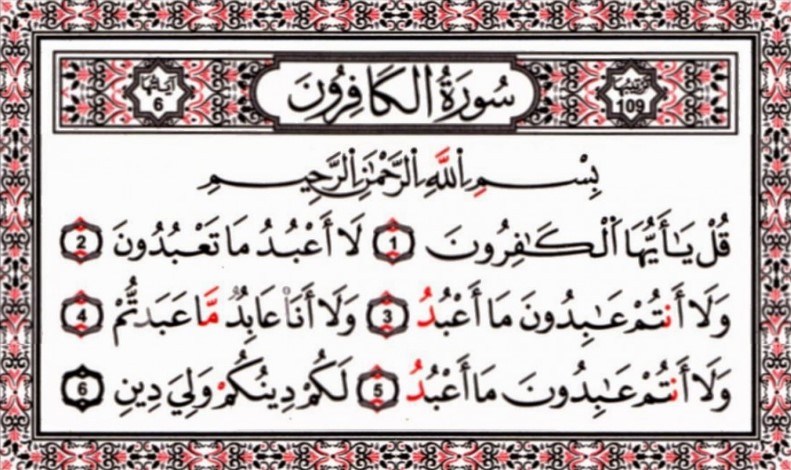 آياتها 6
سُورَةُ الكَافِرُونَ
ترتيبها 109
بِسْمِ اللَّهِ الرَّحْمَٰنِ الرَّحِيمِ
قُلْ يَٰٓأَيُّهَا ٱلْكَٰفِرُونَ 1 لَآ أَعْبُدُ مَا تَعْبُدُونَ 2
وَلَآ أَنتُمْ عَٰبِدُونَ مَآ أَعْبُدُ 3 وَلَآ أَنَا۠ عَابِدٌ مَّا عَبَدتُّمْ 4
وَلَآ أَنتُمْ عَٰبِدُونَ مَآ أَعْبُدُ 5 لَكُمْ دِينُكُمْ وَلِيَ دِينِ 6